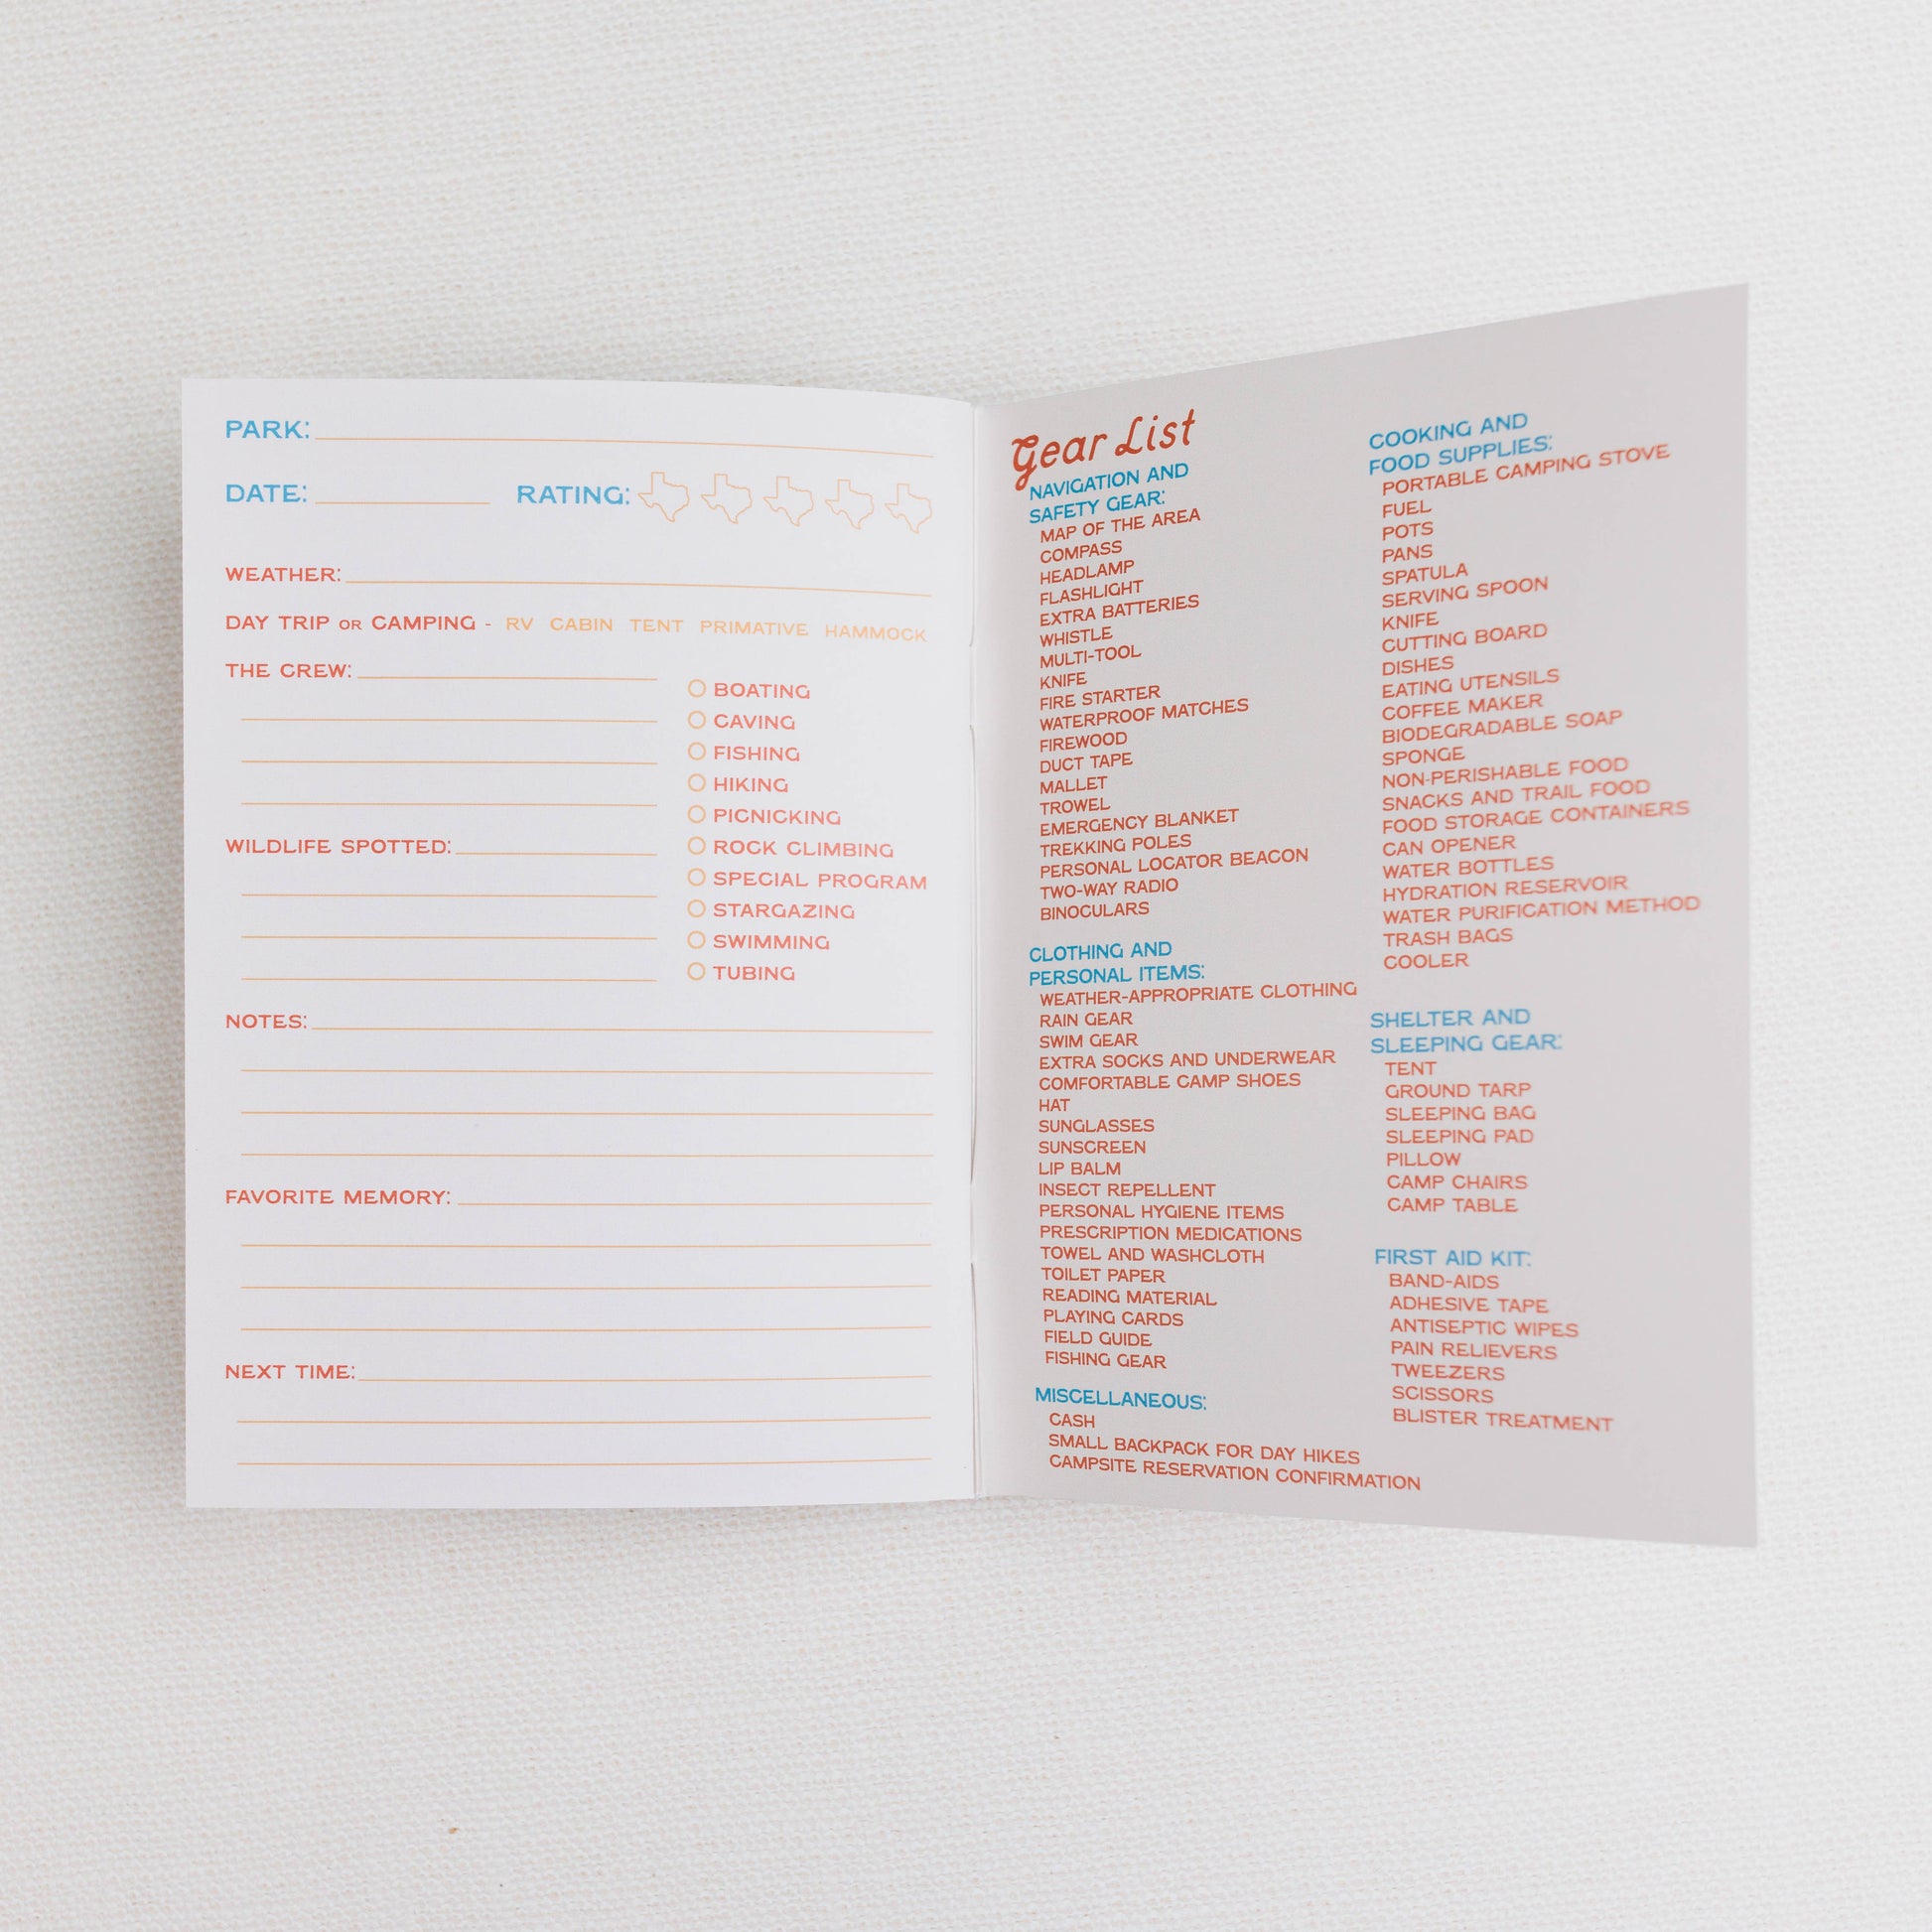 PARK:
DATE: RATING:
WEATHER:
DAY TRIP OR CAMPING - RV CABIN TENT PRIMATIVE HAMMOCK
THE CREW:
WILDLIFE SPOTTED:
BOATING
CAVING
FISHING
HIKING
PICNICKING
ROCK CLIMBING
SPECIAL PROGRAM
STARGAZING
SWIMMING
TUBING
NOTES:
FAVORITE MEMORY:
NEXT TIME:
Gear List
NAVIGATION AND
SAFETY GEAR:
MAP OF THE AREA
COMPASS
HEADLAMP
FLASHLIGHT
EXTRA BATTERIES
WHISTLE
MULTI-TOOL
KNIFE
FIRE STARTER
WATERPROOF MATCHES
FIREWOOD
DUCT TAPE
MALLET
TROWEL
EMERGENCY BLANKET
TREKKING POLES
PERSONAL LOCATOR BEACON
TWO-WAY RADIO
BINOCULARS
CLOTHING AND
PERSONAL ITEMS:
WEATHER-APPROPRIATE CLOTHING
RAIN GEAR
SWIM GEAR
EXTRA SOCKS AND UNDERWEAR
COMFORTABLE CAMP SHOES
HAT
SUNGLASSES
SUNSCREEN
LIP BALM
INSECT REPELLENT
PERSONAL HYGIENE ITEMS
PRESCRIPTION MEDICATIONS
TOWEL AND WASHCLOTH
TOILET PAPER
READING MATERIAL
PLAYING CARDS
FIELD GUIDE
FISHING GEAR
MISCELLANEOUS:
CASH
SMALL BACKPACK FOR DAY HIKES
CAMPSITE RESERVATION CONFIRMATION
COOKING AND
FOOD SUPPLIES:
PORTABLE CAMPING STOVE
FUEL
POTS
PANS
SPATULA
SERVING SPOON
KNIFE
CUTTING BOARD
DISHES
EATING UTENSILS
COFFEE MAKER
BIODEGRADABLE SOAP
SPONGE
NON-PERISHABLE FOOD
SNACKS AND TRAIL FOOD
FOOD STORAGE CONTAINERS
CAN OPENER
WATER BOTTLES
HYDRATION RESERVOIR
WATER PURIFICATION METHOD
TRASH BAGS
COOLER
SHELTER AND
SLEEPING GEAR:
TENT
GROUND TARP
SLEEPING BAG
SLEEPING PAD
PILLOW
CAMP CHAIRS
CAMP TABLE
FIRST AID KIT:
BAND-AIDS
ADHESIVE TAPE
ANTISEPTIC WIPES
PAIN RELIEVERS
TWEEZERS
SCISSORS
BLISTER TREATMENT